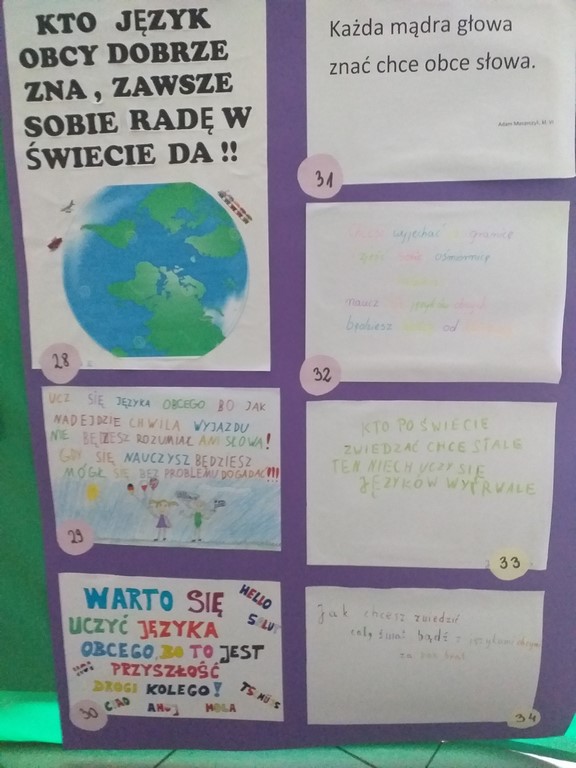 KTO JĘZYK
OBCY DOBRZE
ZNA, ZAWSZE
SOBIE RADĘ W
ŚWIECIE DA!!
28
UCZ SIĘ JĘZYKA OBCEGO BO JAK
NADEJDZIE CHWILA WYJAZDU
NIE BĘDZIESZ ROZUMIAŁ ANI SŁOWA!
GDY SIĘ NAUCZYSZ BĘDZIESZ
MÓGŁ SIĘ BEZ PROBLEMU DOGADAĆ!!!
29
WARTO SIĘ
UCZYĆ JĘZYKA
OBCEGO, BO TO JEST
PRZYSZŁOŚĆ
DROGI KOLEGO!
HELLO
CIAO
AHOJ
HOLA
30
Każda mądra głowa
znać chce obce słowa.
31
wyjechać granicę
uśmiechnię
naucz
będziesz od
32
KTO PO ŚWIECIE
ZWIEDZAĆ CHCE STALE
TEN NIECH UCZY SIĘ
JĘZYKÓW WYTRWALE
33
Jak chcesz zwiedzić
cały świat bądź z językami
za pan brat
34